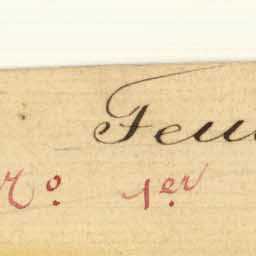 Feu
Nº. 1.er